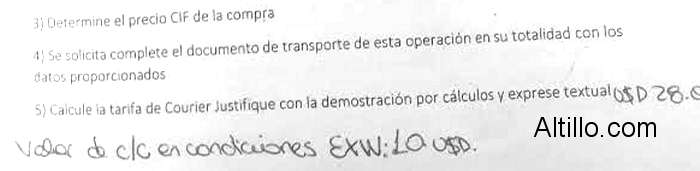 3) Determine el precio CIF de la compra
4) Se solicita complete el documento de transporte de esta operación en su totalidad con los
datos proporcionados
5) Calcule la tarifa de Courier Justifique con la demostración por cálculos y exprese textual U$D 28.
Altillo.com
Valor de c/c en condiciones EXW: U$D.